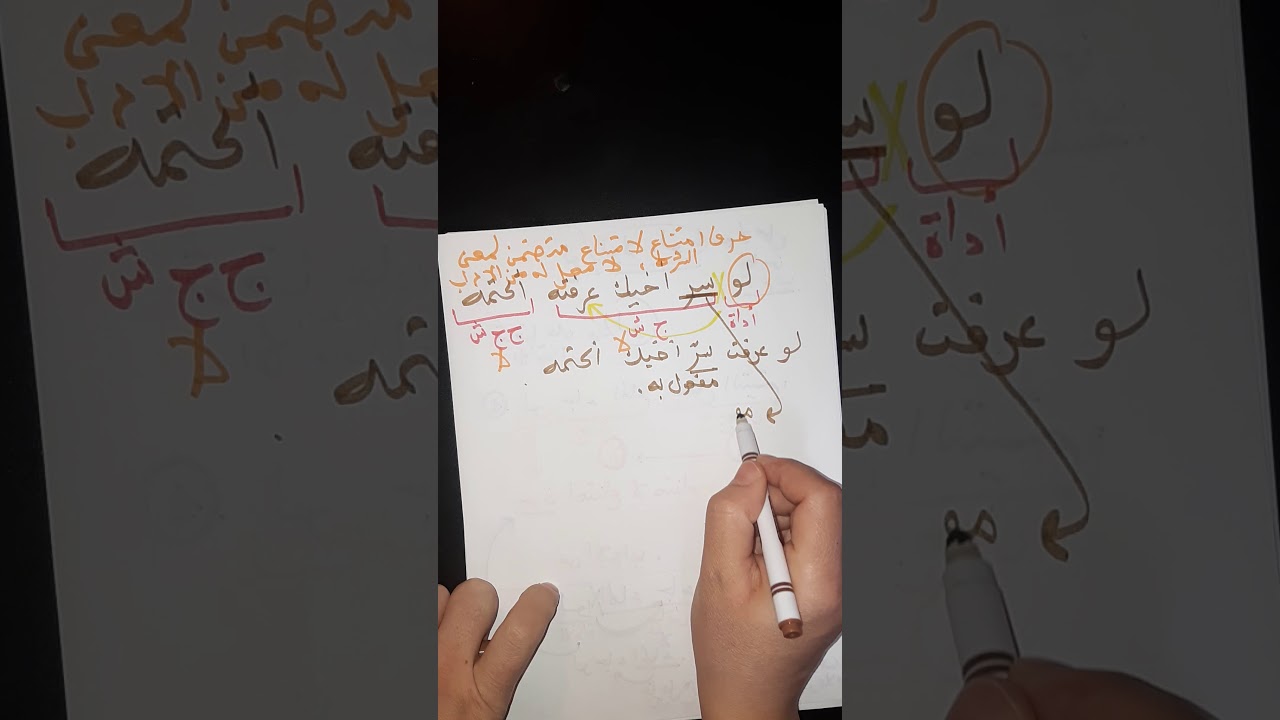 حرف امتناع لامتناع متضمن لمعنى
الشرط، لا محل له من الإعراب
لو سر اخيك عرفته اكتمه
أداة ج ش ج ج ش
لا لا
لو عرفت سرّ اخيك اكتمه
مفعول به.
مف